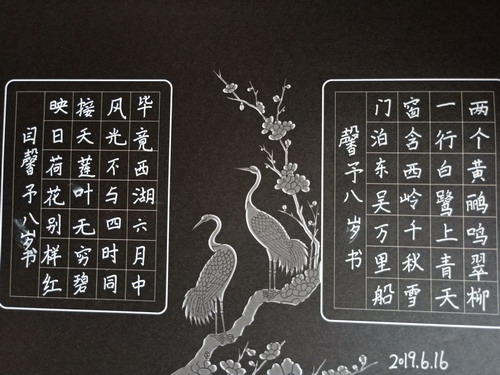 两个黄鹂鸣翠柳
一行白鹭上青天
窗含西岭千秋雪
门泊东吴万里船
馨予八岁书
毕竟西湖六月中
风光不与四时同
接天莲叶无穷碧
映日荷花别样红
闫馨予八岁书
2019.6.16